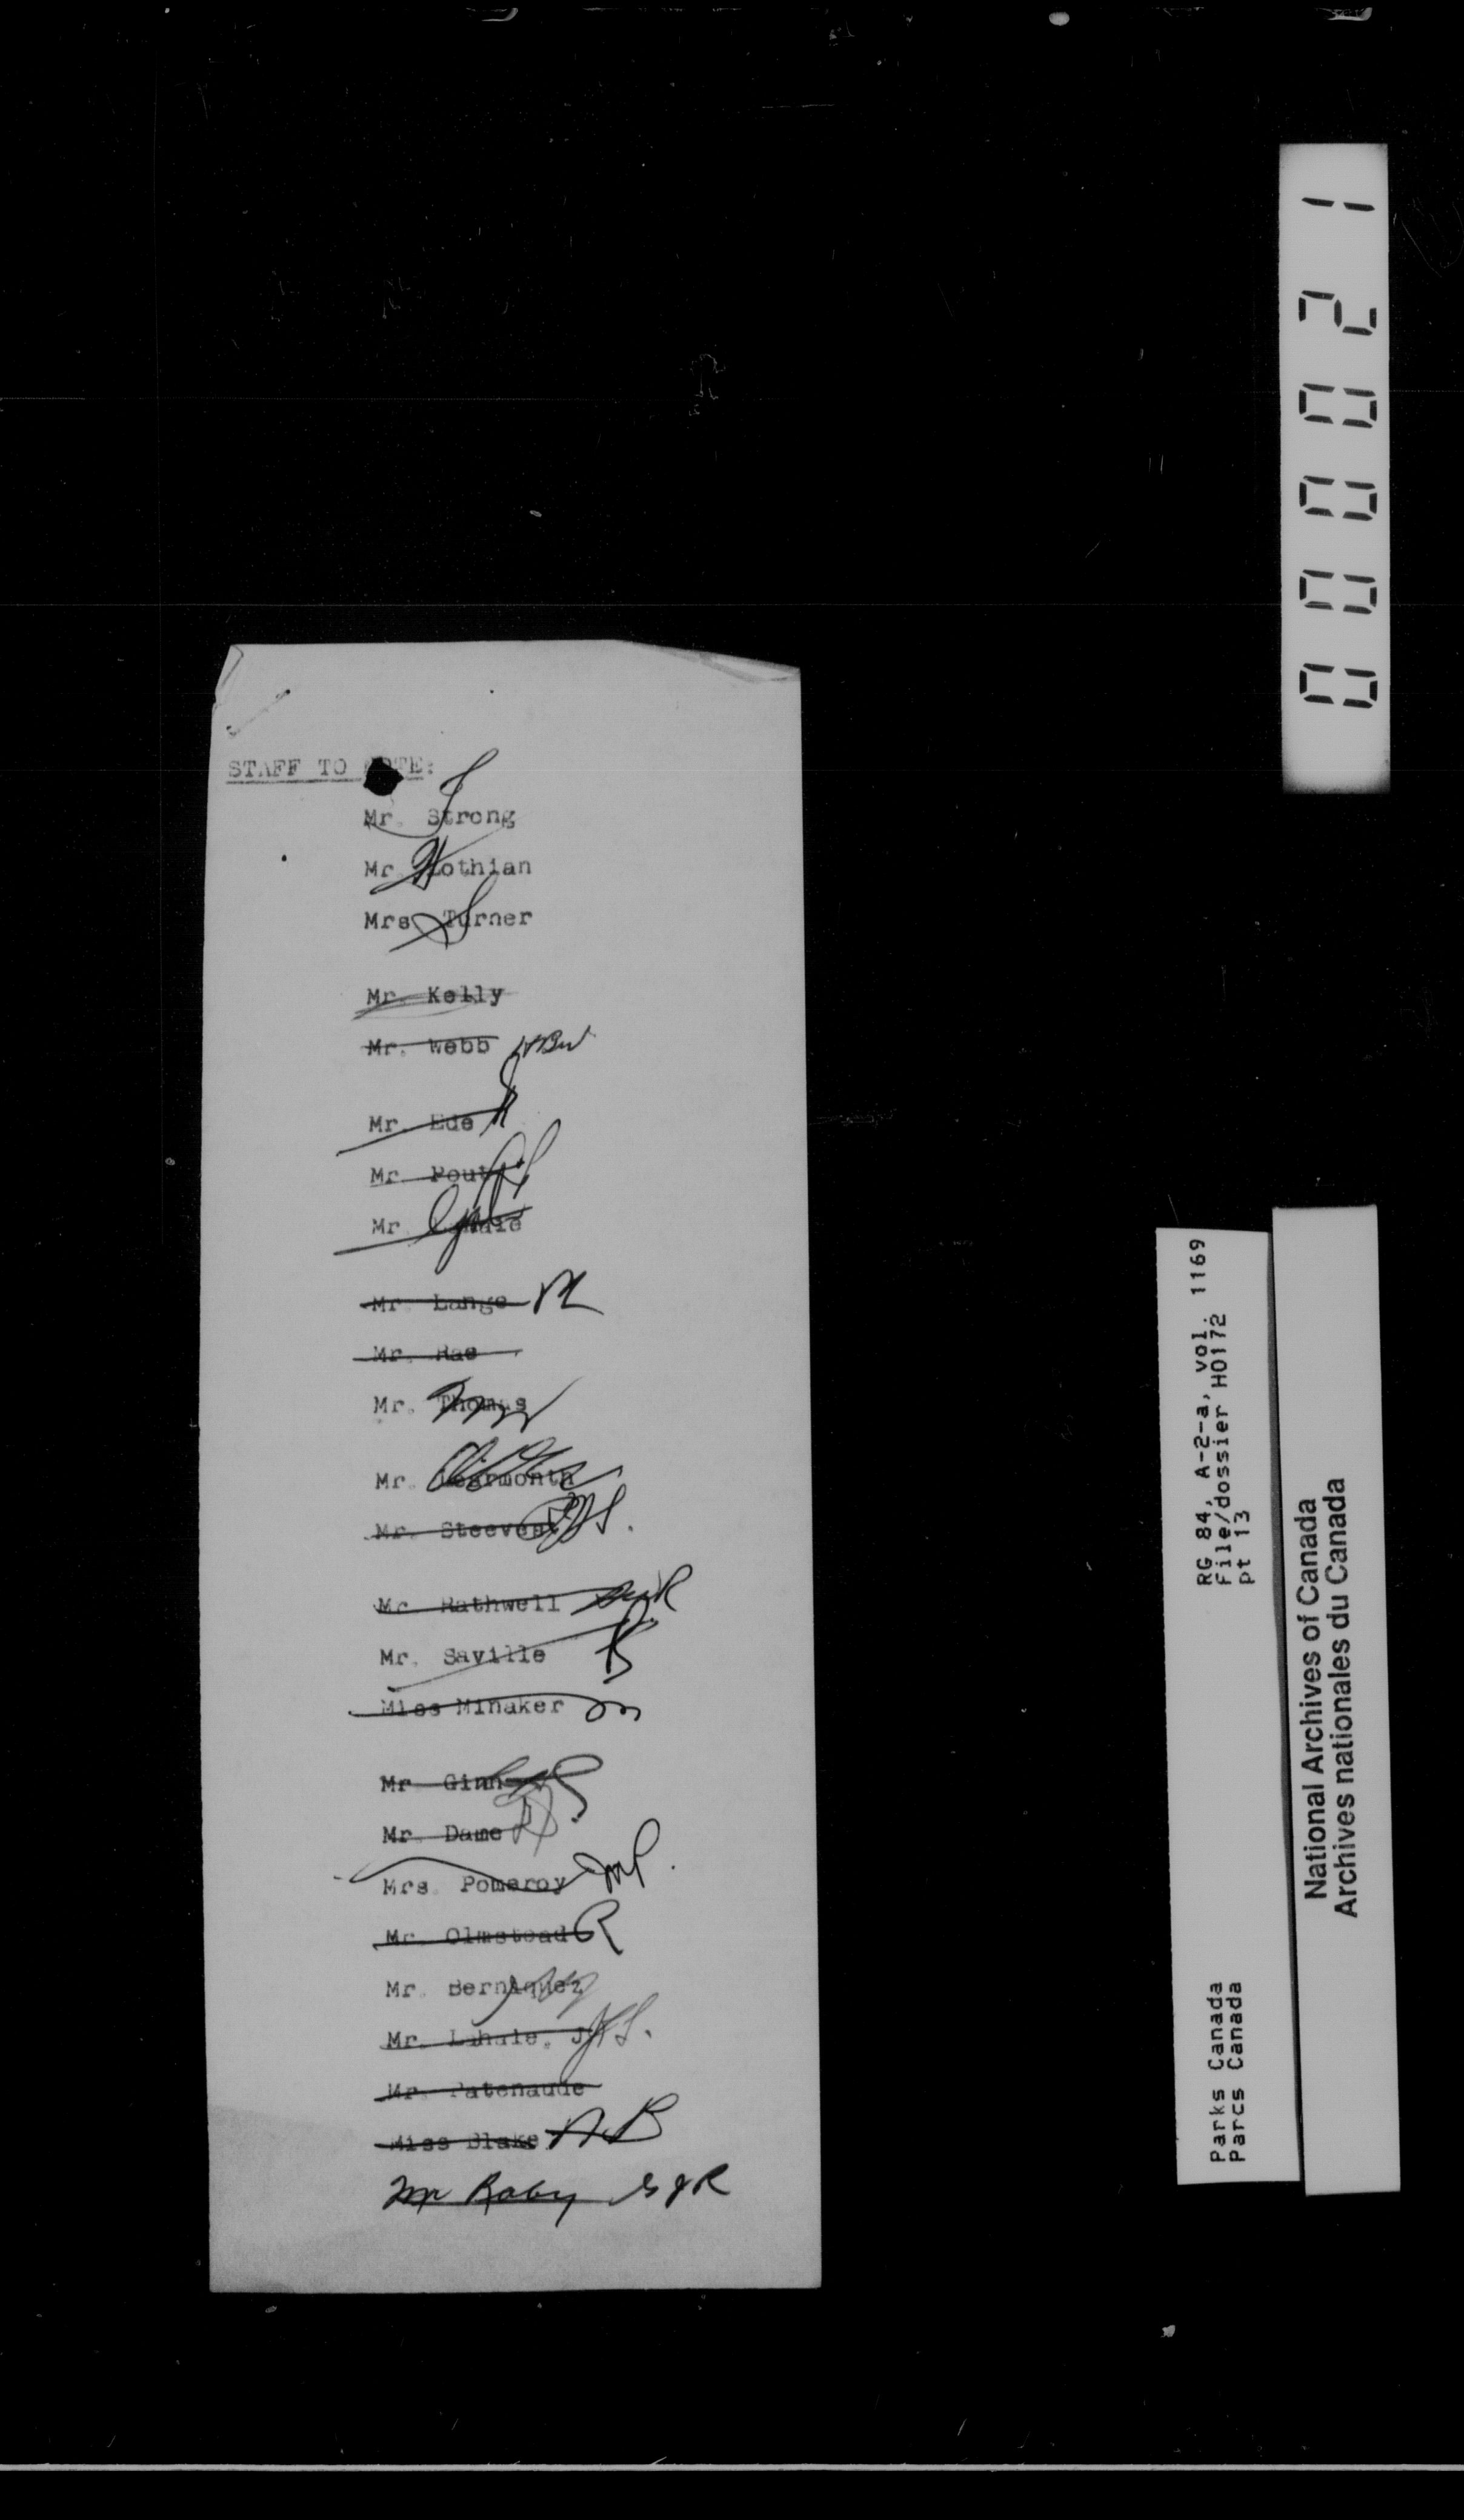 STAFF TO NOTE:
Mr. Strong
Mr. Lothian
Mrs. Turner
Mr. Kelly
Mr. Webb
Mr. Ede
Mr. Pout
Mr.
Mr. Lange
Mr. Rae
Mr. Thomas
Mr. Learmonth
Mr. Steeves
Mr. Rathwell
Mr. Saville
Miss Minaker m
Mr. Ginn
Mr. Dame
Mrs. Pomeroy
Mr. Olmstead
Mr. Berniquez
Mr. Lahaie, J.
Mr. Patenaude
Miss Blake AB
Mr Raby GJR
000021
RG 84, A-2-a, vol. 1169
File/dossier H0172
pt 13
Parks Canada
Parcs Canada
National Archives of Canada
Archives nationales du Canada